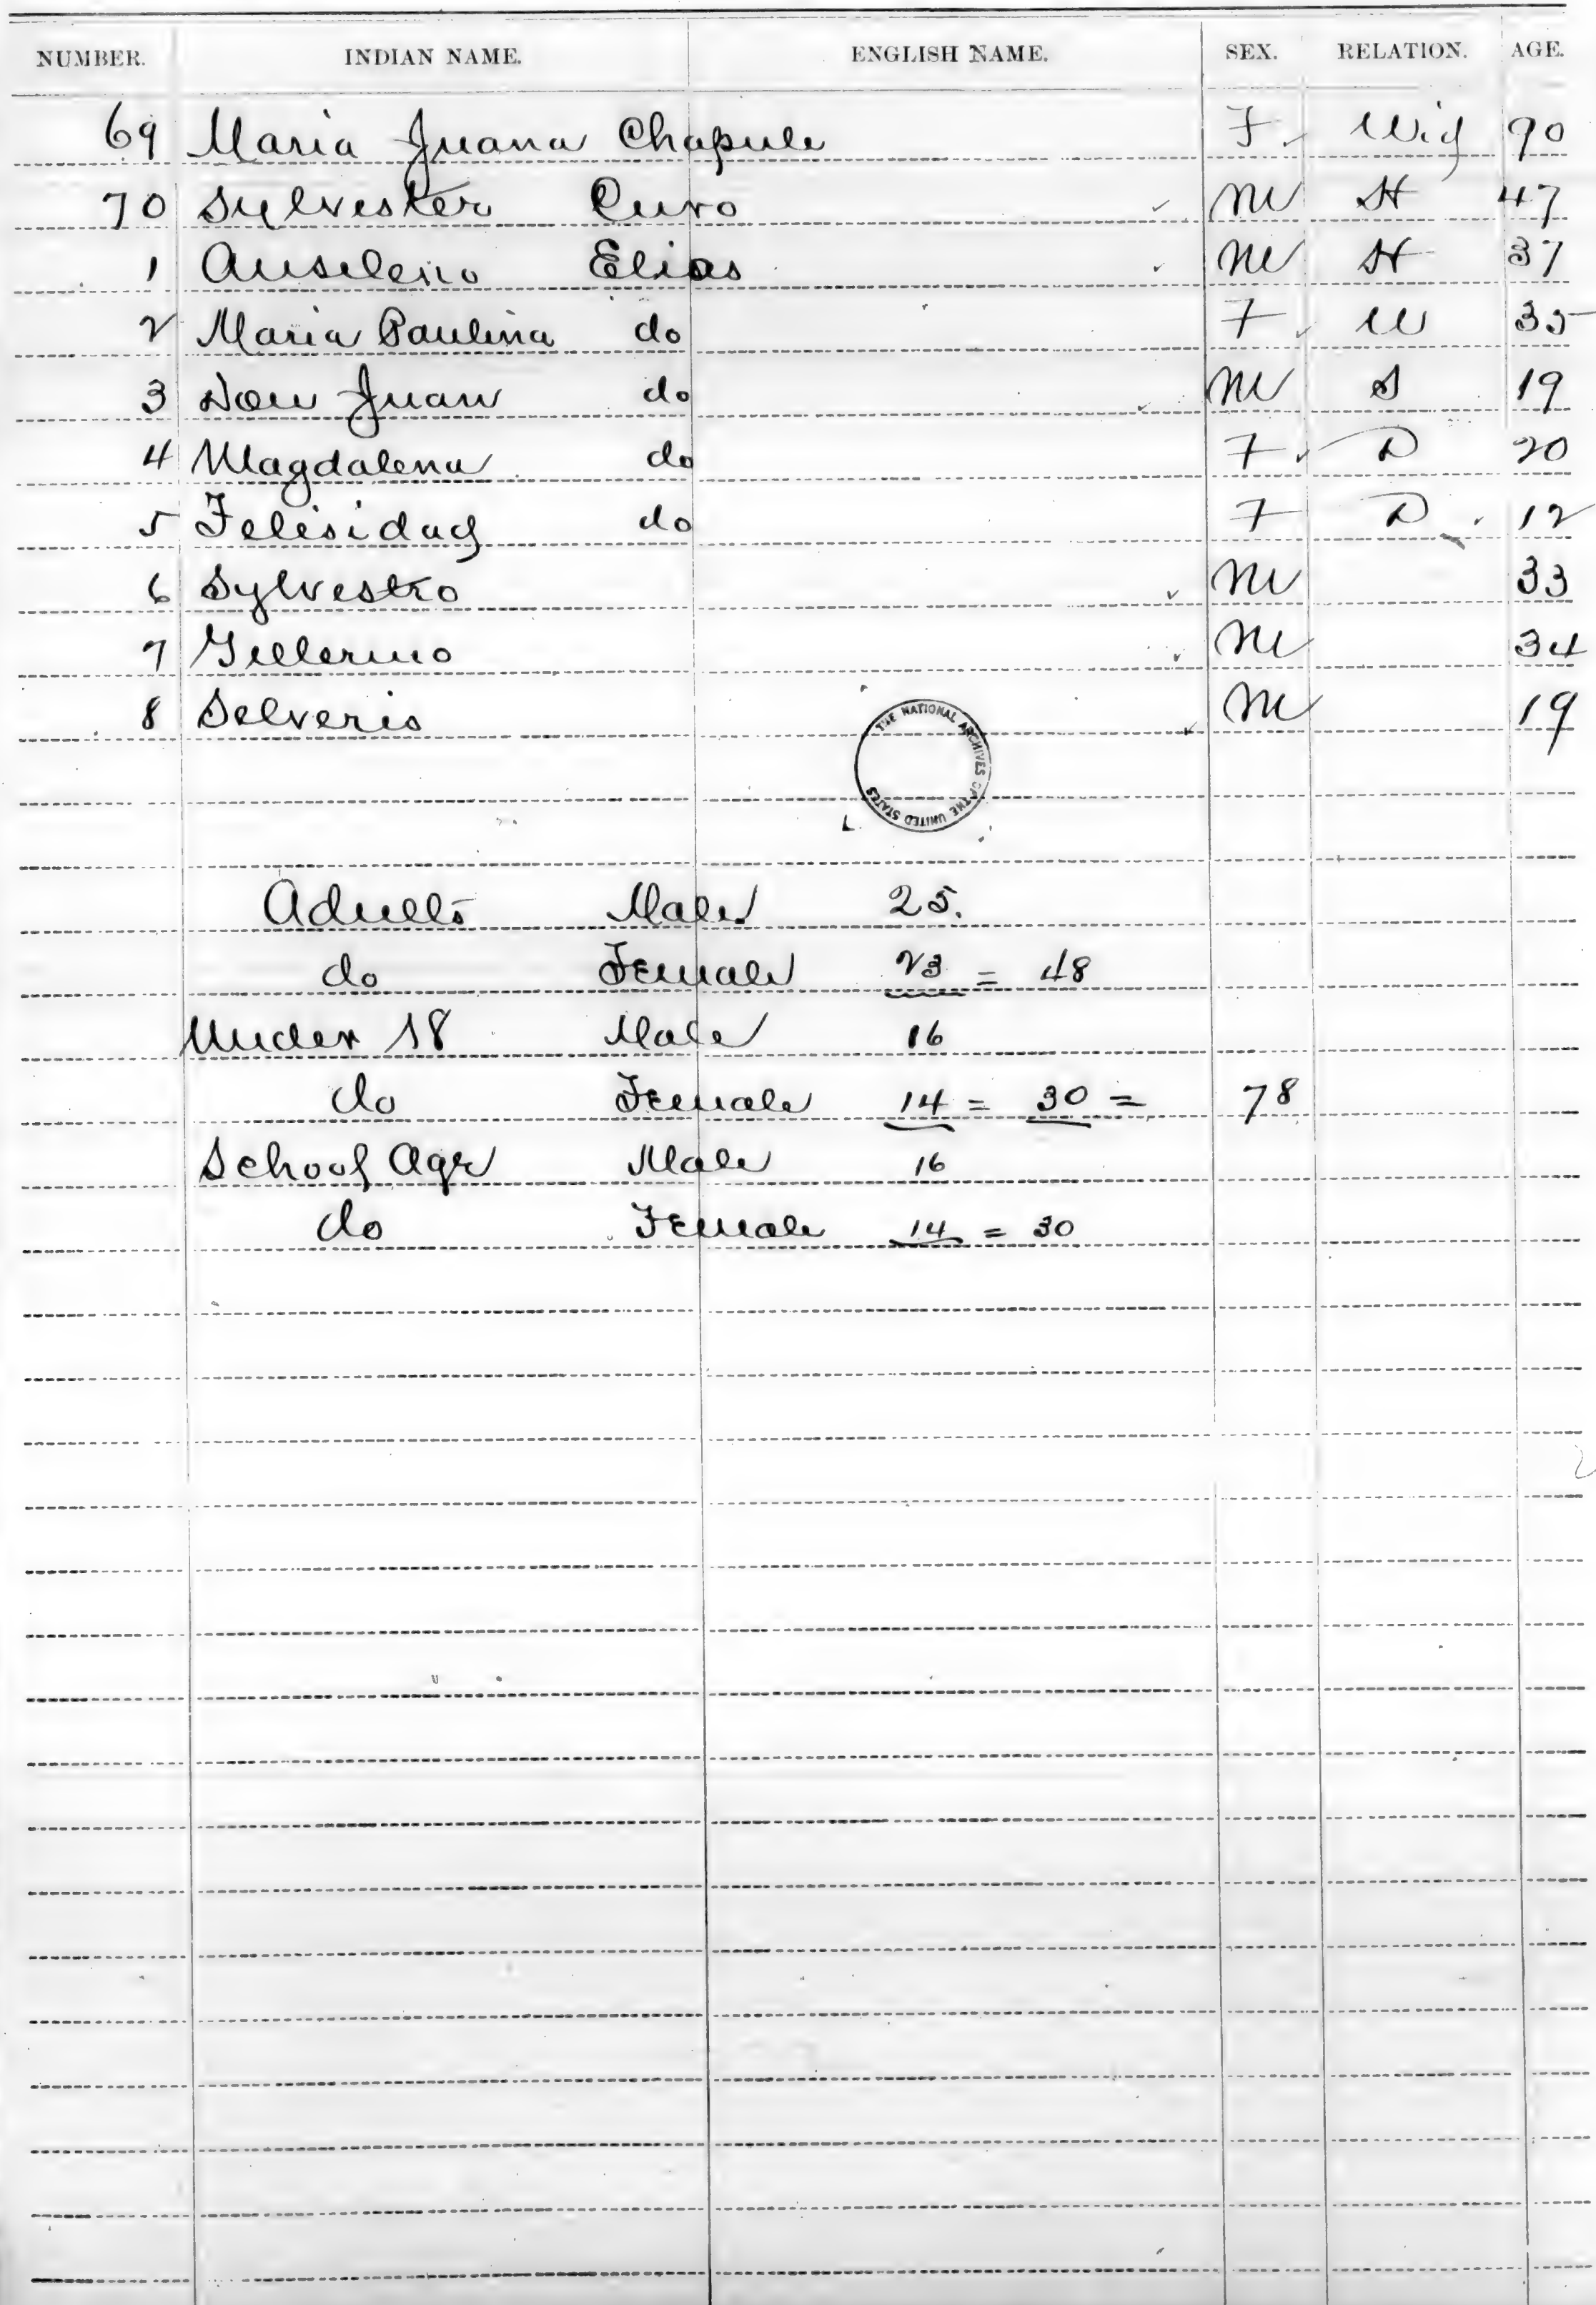 NUMBER. INDIAN NAME. ENGLISH NAME. SEX. RELATION. AGE.
69 Maria Juana Chapule F. Wid 90
70 Sylvester Curo ✓ M H 47
1 Anselmo Elias ✓ M H 37
2 Maria Paulina do F ✓ W 35
3 Don Juan do ✓ M S 19
4 Magdalena do F ✓ D 20
5 Felisidad do F D 12
6 Sylvestro ✓ M 33
7 Gillermo ✓ M 34
8 Selverio ✓ M 19
THE NATIONAL ARCHIVES OF THE UNITED STATES
Adults Male 25.
do Female 23 = 48
Under 18 Male 16
do Female 14 = 30 = 78
School Age Male 16
do Female 14 = 30